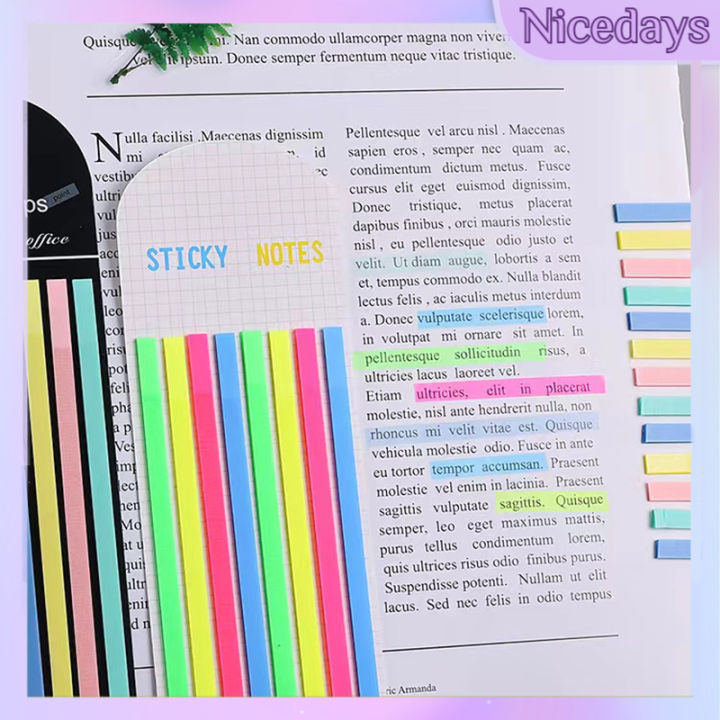 Nicedays
Quisque Non commodo ullamcorper magna non
ipsum. Donec semper fermentum neque vitae tristique.
Nulla facilisi .Maecenas dignissim
mi id
point
office
STICKY NOTES
Pellentesque vel arcu nisl . Maecenas
sapien eros , semper nec quam ac,
condimentum dictum metus. Fusce
cursus elit eget euismod dignissim,
Donec tristique, metus placerat
dapibus finibus , orci mauris molestie
nisl , eu pellentesque odio justo et
velit. Ut diam augue, lobortis a sem
et, tempus commodo ex. Nulla blandit
lectus felis , ac iaculis metus interdum
a. Donec vulputate scelerisque lorem,
in volutpat mi ornare sit amet. In
pellentesque sollicitudin risus, a
ultricies lacus laoreet vel.
Etiam ultricies, elit in placerat
molestie, nisl ante hendrerit nulla, non
rhoncus mi velit vitae est. Quisque
vehicula molestie odio. Fusce in ante
eu tortor tempor accumsan. Praesent
molestie vel enim in lacinia. Praesent
sagittis vulputate sagittis. Quisque
semper, leo eget maximus mattis,
purus tellus condimentum lorem,
quis ultrices risus odio finibus purus.
Suspendisse potenti. Nullam ut elit
lacus. Sed nec felis in odio tempus
ric Armanda